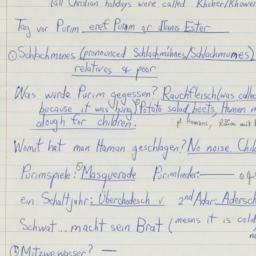 (all Christian holidays were called Khober/Khower
Tag vor Purim, eref Purim or Ilons Ester
① Schlachmones (pronounced Schlachmohnes/Schlachmumes)
relatives & poor
Was wurde Purim gegessen? Rauchfleisch (was called
because it was hung) Potato salad, beets, Haman m
dough for children.
Womit hat man Haman geschlagen? No noise Chil
Purimspiele: Masquerade Purimlieder: —
ein Schaltjahr: Überchodesch v. 2nd Adar: Adersch
Schwat... macht sein Brat (means it is cold
② Mitzwe wasser? —